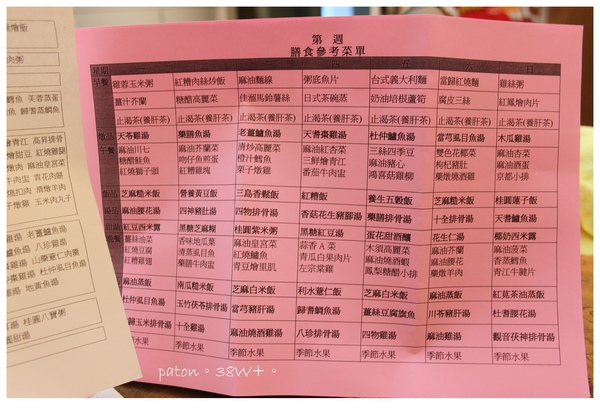 第 週
膳食參考菜單
星期 一 二 三 四 五 六 日
早餐 雞蓉玉米粥 紅糟肉絲炒飯 麻油麵線 粥底魚片 台式義大利麵 當歸紅燒麵 雞絲粥
薑汁芥蘭 糖醋高麗菜 佳溜馬鈴薯絲 日式茶碗蒸 奶油培根蘆筍 腐皮三絲 紅鳳燴肉片
止渴茶(養肝茶) 止渴茶(養肝茶) 止渴茶(養肝茶) 止渴茶(養肝茶) 止渴茶(養肝茶) 止渴茶(養肝茶) 止渴茶(養肝茶)
燉品 天苓雞湯 藥膳魚湯 老薑鱸魚湯 天耆棗雞湯 杜仲鱸魚湯 當芎虱目魚湯 木瓜雞湯
午餐 麻油川七 麻油芥蘭菜 清炒高麗菜 麻油杏菜 三絲四季豆 雙色花椰菜 麻油杏菜
糖醋鮭魚 吻仔魚煎蛋 橙汁鱈魚 三鮮燴青江 麻油豬心 枸杞豬肚 麻油酒蛋
紅燒獅子頭 紅糟雞塊 栗子燉雞 番茄牛肉盅 鴻喜菇雞柳 藥燉燒酒雞 京都小排
芝麻糙米飯 營養黃豆飯 三島香鬆飯 紅糟飯 養生五穀飯 芝麻糙米飯 桂圓蓮子飯
麻油腰花湯 四神豬肚湯 四物排骨湯 香菇花生豬腳湯 藥膳排骨湯 十全排骨湯 天香鱸魚湯
紅豆西米露 黑糖芝麻糊 桂圓紫米粥 黑糖紅豆湯 蛋花甜酒釀 花生仁湯 椰奶西米露
晚餐 薑絲油菜 香味地瓜葉 麻油皇宮菜 蒜香A菜 木須高麗菜 麻油芥蘭 麻油菠菜
紅燒豆腐 清蒸鱈魚 紅燒鱸魚 青瓜白果肉片 麻油燒酒蝦 麻油腰花 香蒸鱈魚
紅糟雞翅 藥膳牛肉盅 青豆燴里肌 左宗棠雞 鳳梨糖醋小排 藥燉羊肉 青江牛腱片
麻油蒸飯 南瓜糙米飯 芝麻白米飯 利水薏仁飯 芝麻白米飯 麻油蒸飯 紅莧茶油蒸飯
杜仲虱目魚湯 玉竹茯苓排骨湯 當芎豬肝湯 歸耆鯛魚湯 薑絲豆腐旗魚 川芎豬肝湯 杜耆腰花湯
歸玉米排骨湯 十全雞湯 麻油燒酒雞湯 八珍排骨湯 四物雞湯 麻油雞湯 觀音茯神排骨湯
季節水果 季節水果 季節水果 季節水果 季節水果 季節水果 季節水果
paton。38W+。